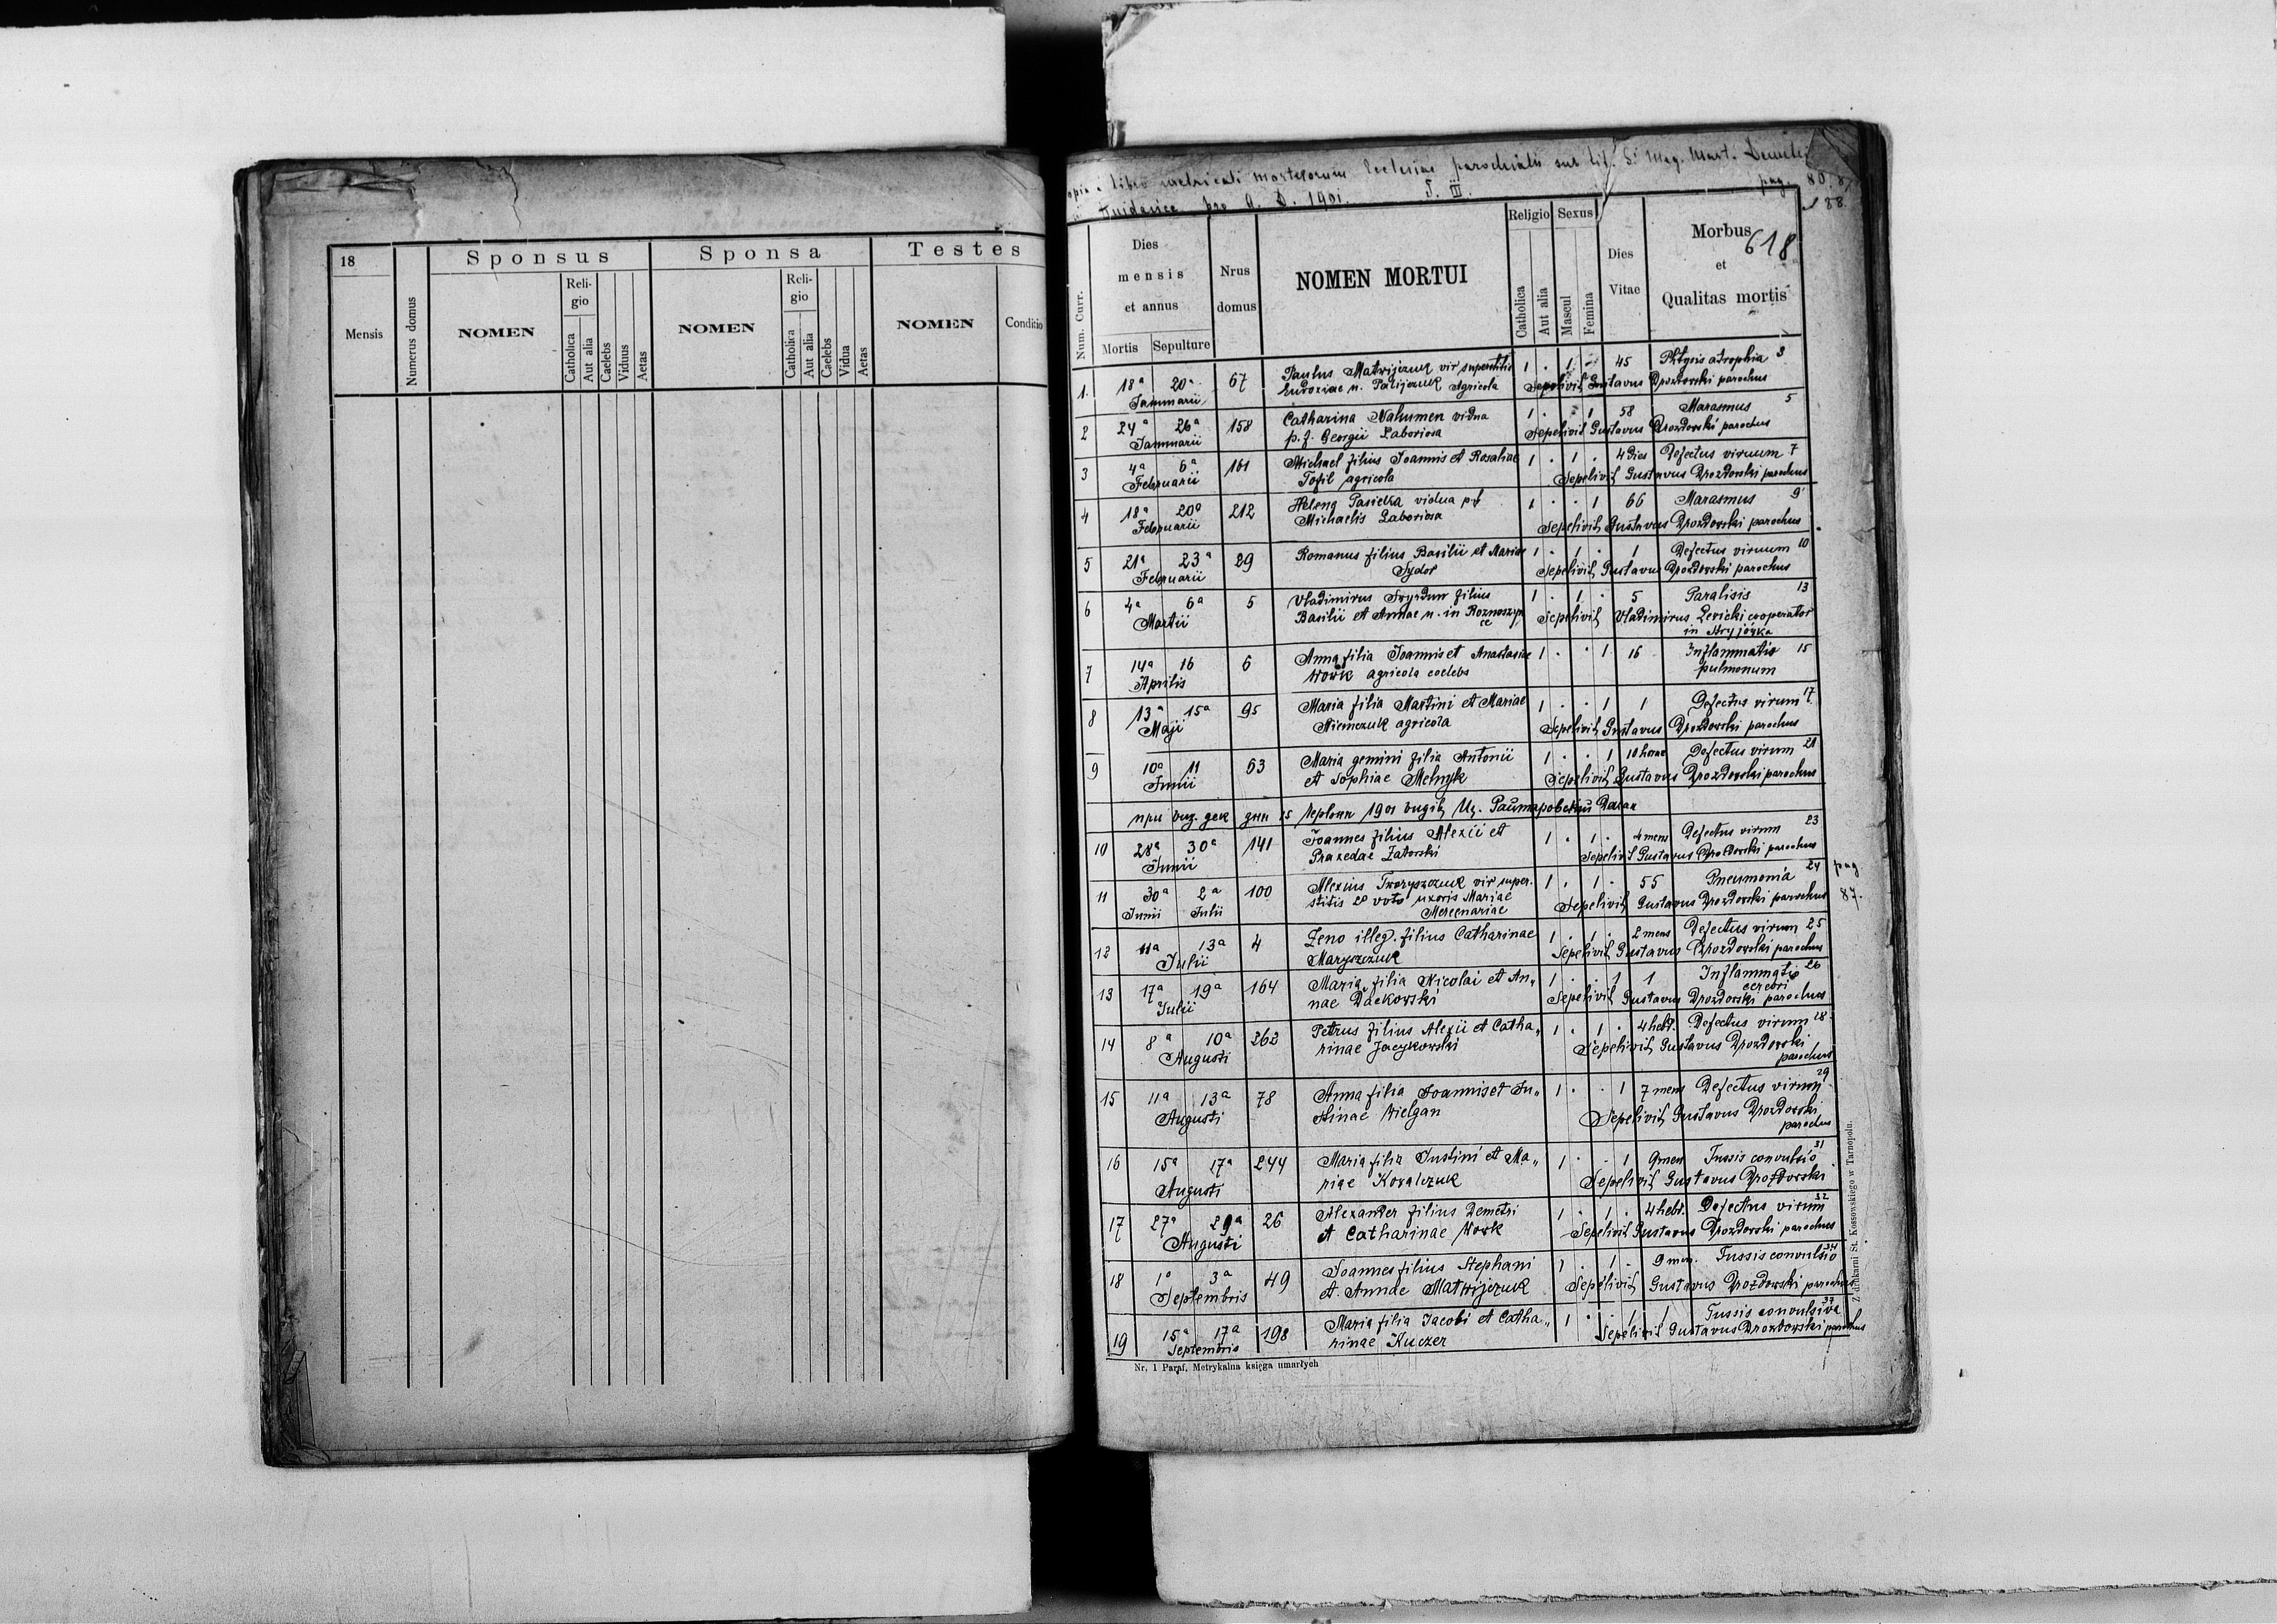 18
Mensis
Numerus domus
Sponsus
NOMEN
Reli-
gio
Catholica
Aut alia
Caelebs
Viduus
Aetas
Sponsa
NOMEN
Reli-
gio
Catholica
Aut alia
Caelebs
Vidua
Aetas
Testes
NOMEN
Conditio
libro metricali mortuorum Ecclesiae parochialis sub tit. S.
pag. 80, 8
pro A. D. 1901. T. III.
88.
Num. Curr.
Dies
mensis
et annus
Mortis
Sepulture
Nrus
domus
NOMEN MORTUI
Religio
Catholica
Aut alia
Sexus
Mascul
Femina
Dies
Vitae
Morbus
618
et
Qualitas mortis
1. 18a 20a 67 Paulus Matwijczuk vir superstitis 1 . 1 . 45 Phtysis atrophia 3
Januarii Eudoxiae n. Palijczuk Agricola Sepelivit Gustavus Drozdowski parochus
2 24a 26a 158 Catharina Nahumen vidua 1 . . 1 58 Marasmus 5
Januarii p. f. Georgii Laboriosa Sepelivit Gustavus Drozdowski parochus
3 4a 6a 161 Michael filius Joannis et Rosaliae 1 . 1 . 4 dies Defectus viruum 7
Februarii Tofil agricola Sepelivit Gustavus Drozdowski parochus
4 18a 20a 212 Helena Pasieka vidua p.f 1 . . 1 66 Marasmus 9
Februarii Michaelis Laboriosa Sepelivit Gustavus Drozdowski parochus
5 21a 23a 29 Romanus filius Basilii et Mariae 1 . 1 . 1 Defectus viruum 10
Februarii Sydor Sepelivit Gustavus Drozdowski parochus
6 4a 6a 5 Vladimirus filius 1 . 1 . 5 Paralisis 13
Martii Basilii et Annae n. in Roznoszyn Sepelivit Vladimirus Levicki cooperator
ce in Stryjówka
7 14a 16 6 Anna filia Joannis et Anastasiae 1 . . 1 16 Inflammatio 15
Aprilis Wowk agricola coelebs pulmonum
8 13a 15a 95 Maria filia Martini et Mariae 1 . . 1 1 Defectus virum 17
Maji Niemczuk agricola Sepelivit Gustavus Drozdowski parochus
9 10a 11 63 Maria gemini filia Antonii 1 . . 1 10 horae Defectus virum 21
Junii et Sophiae Melnyk Sepelivit Gustavus Drozdowski parochus
при виз. дек дня 25 1901 Декан
10 28a 30a 141 Joannes filius Alexii et 1 . 1 . 4 mens Defectus virum 23
Junii Praxedae Zatorski Sepelivit Gustavus Drozdowski parochus
pag.
11 30a 2a 100 Alexius vir super- 1 . 1 . 55 Pneumonia 24
Junii Julii stitis 2o voto uxoris Mariae Sepelivit Gustavus Drozdowski parochus 87.
Mercenariae
12 11a 13a 4 Zeno illeg. filius Catharinae 1 . 1 . 2 mens Defectus virum 25
Julii Maryszczuk Sepelivit Gustavus Drozdowski parochus
13 17a 19a 164 Maria filia Nicolai et An„ 1 . . 1 1 Inflammatio 26
cerebri
Julii nae Dackowski Sepelivit Gustavus Drozdowski parochus
14 8a 10a 262 Petrus filius Alexii et Catha„ 1 . 1 . 4 hebd. Defectus virum 28
Augusti rinae Jacykowski Sepelivit Gustavus Drozdowski
parochus
15 11a 13a 78 Anna filia Joannis et Ju„ 1 . . 1 7 mens Defectus virum 29
Augusti stinae Wielgan Sepelivit Gustavus Drozdowski
parochus
16 15a 17a 244 Maria filia Justini et Ma„ 1 . . 1 9 men Tussis convulsio 31
Augusti riae Kowalczuk Sepelivit Gustavus Drozdowski
17 27a 29a 26 Alexander filius Demetri 1 . 1 . 4 hebd. Defectus virum 32
Augusti et Catharinae Wowk Sepelivit Gustavus Drozdowski parochus
18 1a 3a 49 Joannes filius Stephani 1 . 1 . 9 men. Tussis convulsio 34
Septembris et Annae Matwijczuk Sepelivit Gustavus Drozdowski parochus
19 15a 17a 198 Maria filia Jacobi et Catha„ 1 . . 1 1 Tussis convulsiva 37
Septembris rinae Kuczer Sepelivit Gustavus Drozdowski parochus
Nr. 1 Paraf. Metrykalna księga umarłych
Z drukarni St. Kossowskiego w Tarnopolu.